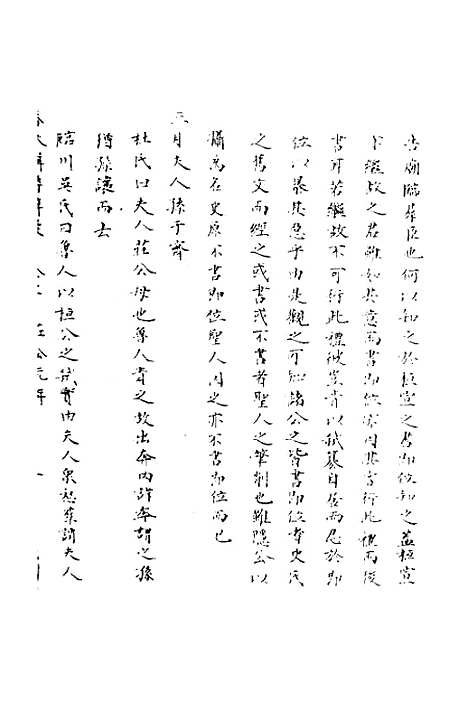 告廟臨羣臣也何以知之於桓宣之書即位知之蓋桓宣
以繼故之君雖如其意而書即位亦因其實行此禮而後
書耳若繼故不可行此禮彼豈肯以弑簒自居而忍於即
位以暴其惡乎由是觀之可知諸公之皆書即位者史氏
之舊文而經之或書或不書者聖人之筆削也雖隱公以
攝而在史原不書即位聖人因之亦不書即位而已
三月夫人孫于齊
杜氏曰夫人莊公母也魯人責之故出奔内諱奔謂之孫
猶孫讓而去
臨川吳氏曰魯人以桓公之弑實由夫人衆怒羣誚夫人
莊公元年